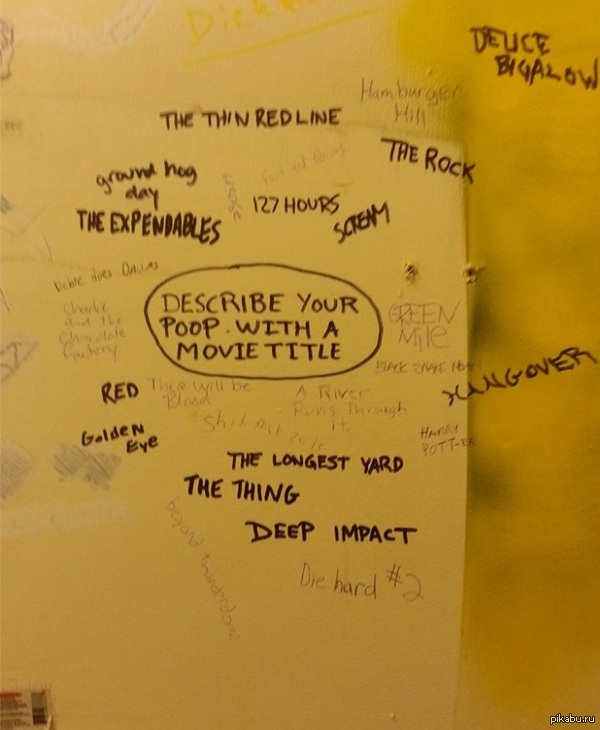 Die H
DEUCE
BIGALOW
Hamburger
Hill
THE THIN RED LINE
THE ROCK
ground hog
day
127 HOURS
THE EXPENDABLES
SCREAM
Debbie does DALLAS
DESCRIBE YOUR
POOP. WITH A
MOVIE TITLE
Charlie
and the
Chocolate
Factory
GREEN
Mile
BLACK SNAKE
HANGOVER
RED
There will be
Blood
A River
Runs Through
It
GoldeN
Eye
HARRY
POTT-ER
THE LONGEST YARD
THE THING
DEEP IMPACT
beyond thunderdome
Die hard #2
pikabu.ru